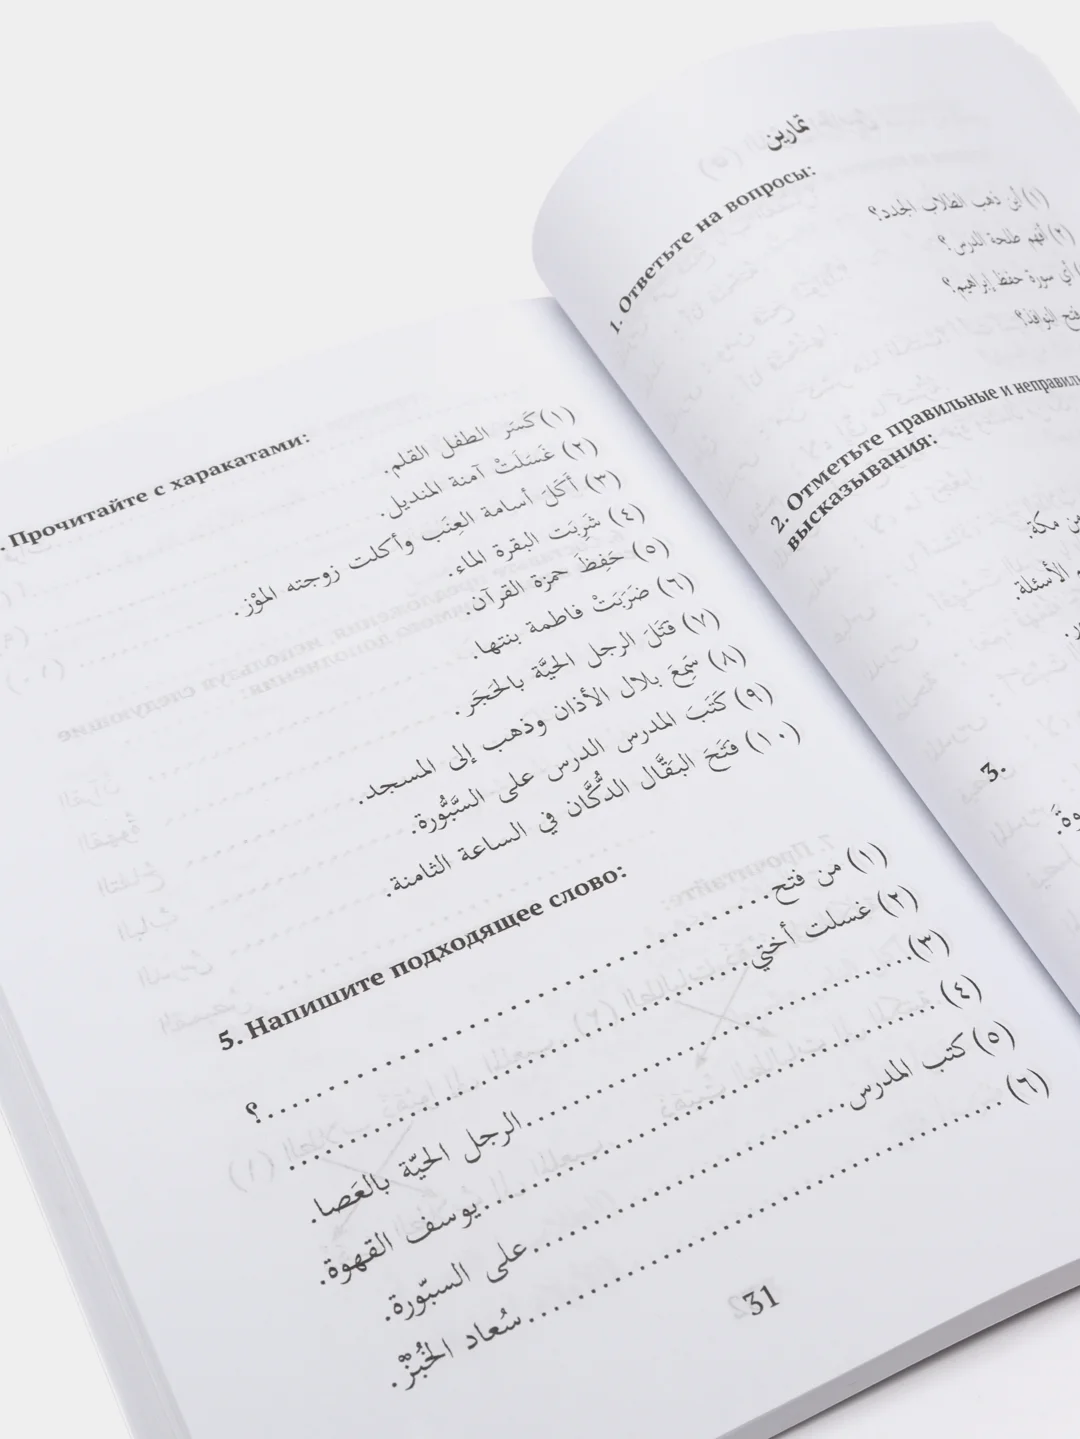 . Прочитайте с харакатами:
(١) كَسَر الطفل القلم.
(٢) غَسَلَتْ آمنة المنديل.
(٣) أَكَلَ أسامة العِنَب وأكلت زوجته المؤز.
(٤) شَرِبَت البقرة الماء.
(٥) حَفِظَ حمزة القرآن.
(٦) ضَرَبَتْ فاطمة بنتها.
(٧) قَتَلَ الرجل الحيَّة بالحَجَر.
(٨) سَمِعَ بلال الأذان وذهب إلى المسجد.
(٩) كَتَبَ المدرس الدرس على السَّبُّورة.
(١٠) فَتَحَ البقَّال الدُّكَّان في الساعة الثامنة.
5. Напишите подходящее слово:
(١) من فتح..............................؟
(٢) غسلت أختي..............................
(٣)..............................الرجل الحيّة بالعَصا.
(٤) ..............................يوسف القهوة.
(٥) كتب المدرس..............................على السبّورة.
(٦) ..............................سُعاد الخُبْزَ.
31
تمارين
1. Ответьте на вопросы:
(١) أين ذهب الطلاب الجدد؟
(٢) أفهم طلحة الدرس؟
) أي سورة حفظ إبراهيم؟
فتح النوافذ؟
2. Отметьте правильные и неправиль
высказывания:
ن مكة.
الأسئلة.
3.
وةً؟